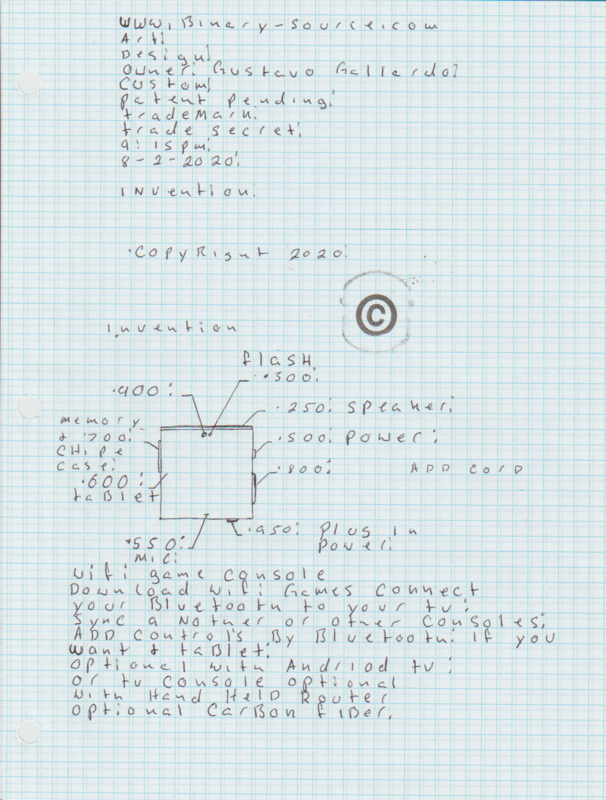 www.Binary-source.com
Art.
Design.
Owner: Gustavo Gallardo.
Custom.
Patent Pending.
TradeMark.
trade secret.
9:15pm.
8-2-2020.
INvention.
.CopyRight 2020.
©
Invention
flASH.
.300.
.400:
.250. Speaker:
memory
& .700.
CHipe
case.
.500. Power:
.800: ADD CorD
.600:
taBlet
.950: Plug in
Power.
.550:
Mic:
wifi game console
Download wifi Games Connect
your Bluetooth to your tv:
Sync a Nother or other Consoles.
ADD Control's By Bluetooth: if you
want & taBlet.
optional with Andriod tv:
or tv console optional
with Hand HelD Router
optional CarBon fiBer.